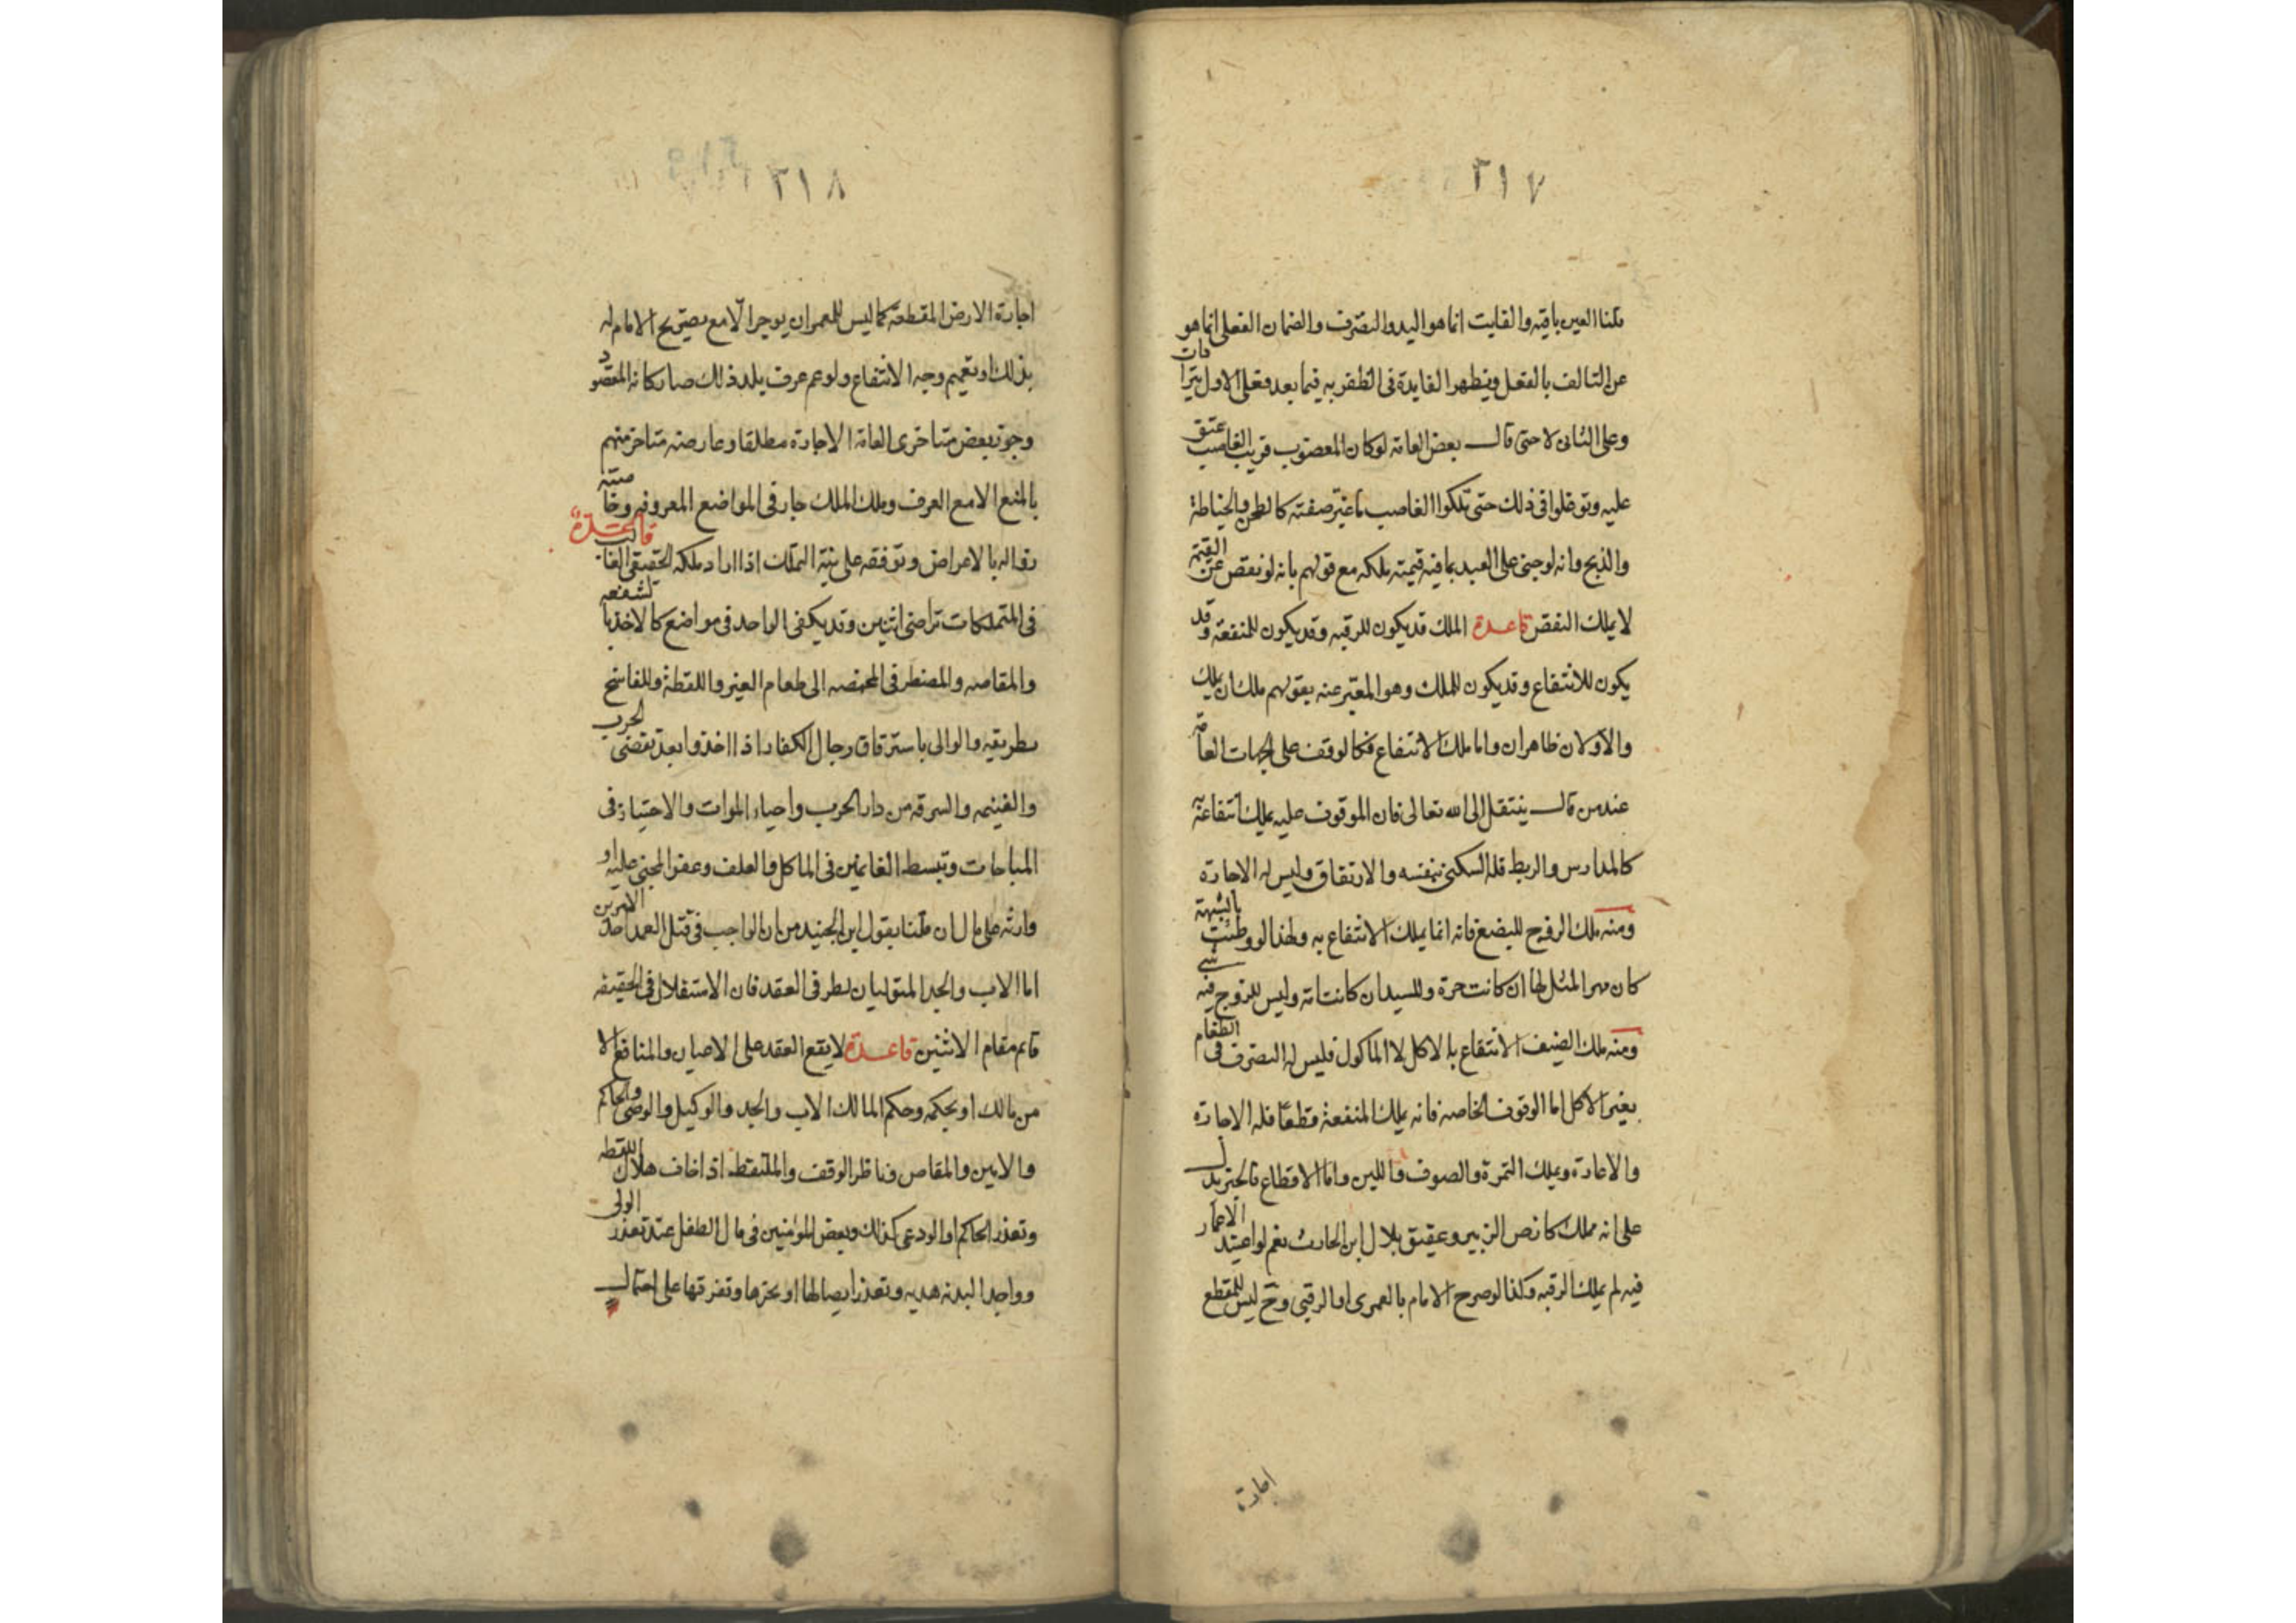 ٣١٧
قلنا العين باقية والفايت انما هو اليد والتصرف والضمان الفعلى انما هو
عن التالف بالفعل ويظهر الفايدة فى الظفر به فيما بعد فعلى الاول يترادان
وعلى الثانى لا حتى قال بعض العامة لو كان المغصوب قريب الغاصب عتق
عليه وتوغلوا فى ذلك حتى تملكوا الغاصب ما غيّر صفته كالطحن والخياطة
والذبح وانه لو جنى على العبد بما فيه قيمته يملكه مع قولهم بانه لو نقص عن القيمة
لا يملك النقص قاعدة الملك قد يكون للرقبه وقد يكون للمنفعة وقد
يكون للانتفاع وقد يكون للملك وهو المعبّر عنه بقولهم ملك ان يملك
والاولان ظاهران واما ملك الانتفاع فكالوقف على الجهات العامة
عند من قال ينتقل الى الله تعالى فان الموقوف عليه يملك انتفاعه
كالمدارس والربط فله السكنى بنفسه والارتفاق وليس له الاجارة
ومنه ملك الزوج للبضع فانه انما يملك الانتفاع به ولهذا لو وطئت بالشبهة
كان مهر المثل لها ان كانت حرة وللسيد ان كانت امة وليس للزوج فيه شى
ومنه ملك الضيف الانتفاع بالاكل لا الماكول فليس له التصرف فى الطعام
بغير الاكل اما الوقوف الخاصه فانه يملك المنفعة قطعا فله الاجارة
والاعارة ويملك الثمرة والصوف واللبن واما الاقطاع فالخبر يدل
على انه مملك كما نص الزبير وعقيق بلال ابن الحارث نعم لو اعتيد الاعمار
فيه لم يملك الرقبه وكذا لو صرح الامام بالعمرى او الرقبى وح ليس للمقطع
اجارة
٣١٨
اجارة الارض المقطعة كما ليس للمعمر ان يوجر الّا مع تصريح الامام له
بذلك او تعميم وجه الانتفاع ولو عم عرف بلد ذلك صار كانه المقصود
وجوز بعض متاخرى العامة الاجارة مطلقا وعارضه متاخر منهم
بالمنع الا مع العرف وملك الملك جار فى المواضع المعروفه وخاصيته
زواله بالاعراض وتوقفه على نية التملك اذا اراد ملكه الحقيقى قاعدة الغالب
فى المتملكات تراضى اثنين وقد يكفى الواحد فى مواضع كالاخذ بالشفعه
والمقاصه والمضطر فى المخمصه الى طعام الغير واللقطة وللفاسخ
بطريقه والوالى باسترقاق رجال الكفار اذا اخذوا بعد تقضى الحرب
والغنيمه والسرقه من دار الحرب واحياء الموات والاحتياز فى
المباحات وتبسط الغانمين فى الماكل والعلف وعفو المجنى عليه او
وارثه على مال ان قلنا بقول ابن الجنيد من ان الواجب فى قتل العمد احد الامرين
اما الاب والجد المتوليان لطرفى العقد فان الاستقلال فى الحقيقه
قائم مقام الاثنين قاعدة لا يقع العقد على الاعيان والمنافع الا
من مالك او بحكمه وحكم المالك الاب والجد والوكيل والوصى والحاكم
والامين والمقاص وناظر الوقف والملتقط اذا خاف هلاك اللقطه
وتعذر الحاكم او الودعى كذلك وبعض المؤمنين فى مال الطفل عند تعذر الولى
وواجد البدنه هديه وتعذر ايصالها او نحرها وتفرقتها على احتمال